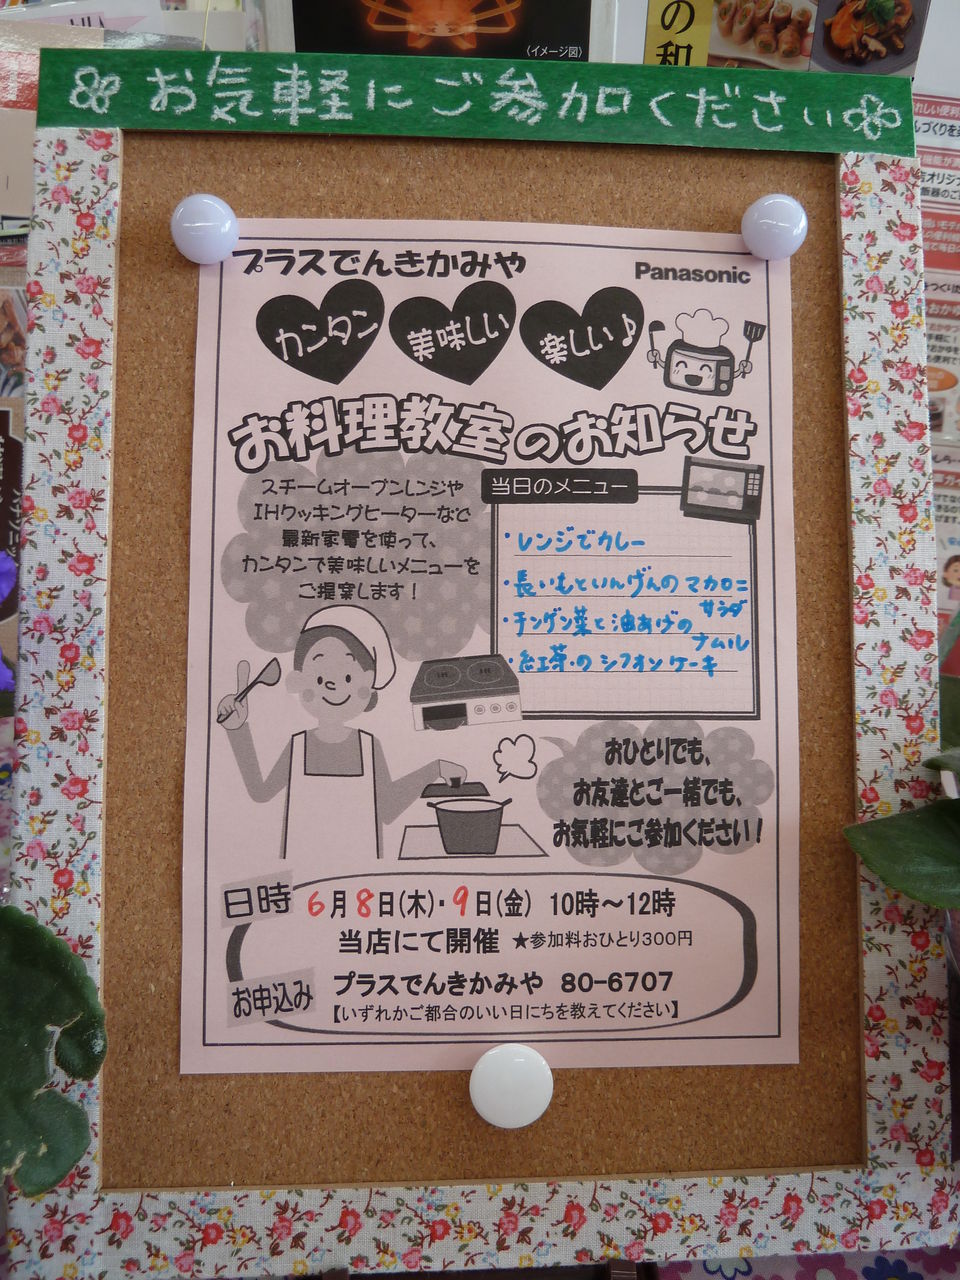 （イメージ図）
の和
お気軽にご参加ください
プラスでんきかみや
Panasonic
カンタン 美味しい 楽しい♪
お料理教室のお知らせ
スチームオーブンレンジや
IHクッキングヒーターなど
最新家電を使って、
カンタンで美味しいメニューを
ご提案します！
当日のメニュー
・レンジでカレー
・長いもといんげんのマカロニサラダ
・チンゲン菜と油あげのナムル
・紅茶のシフォンケーキ
おひとりでも、
お友達とご一緒でも、
お気軽にご参加ください！
日時 6月8日(木)・9日(金) 10時～12時
当店にて開催 ★参加料おひとり300円
お申込み プラスでんきかみや 80-6707
【いずれかご都合のいい日にちを教えてください】